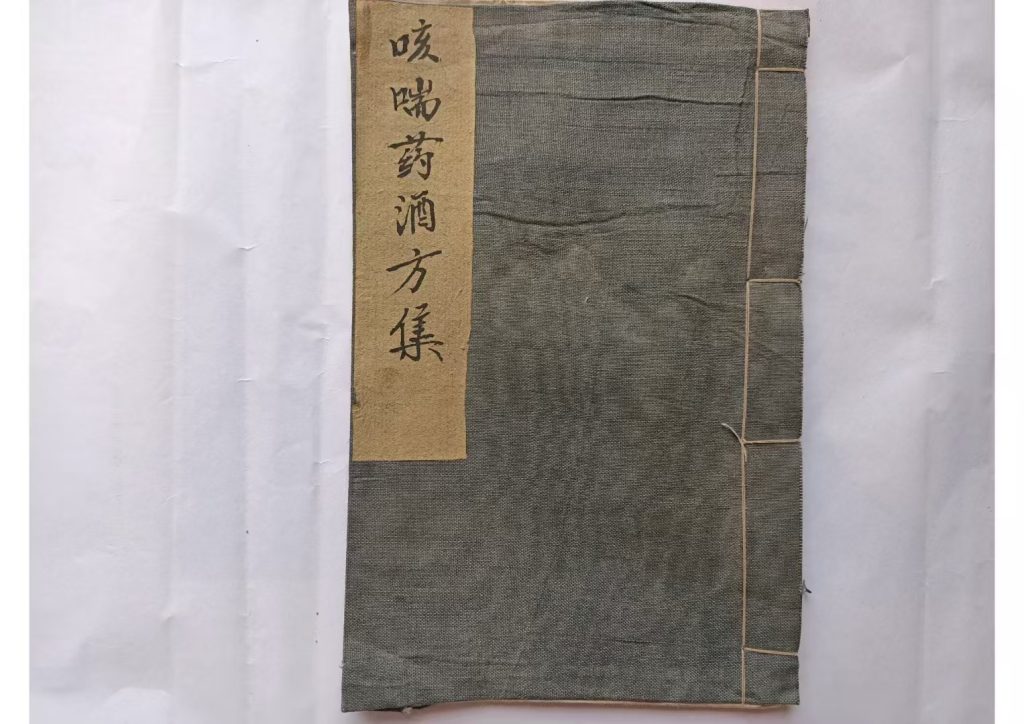 咳喘药酒方集